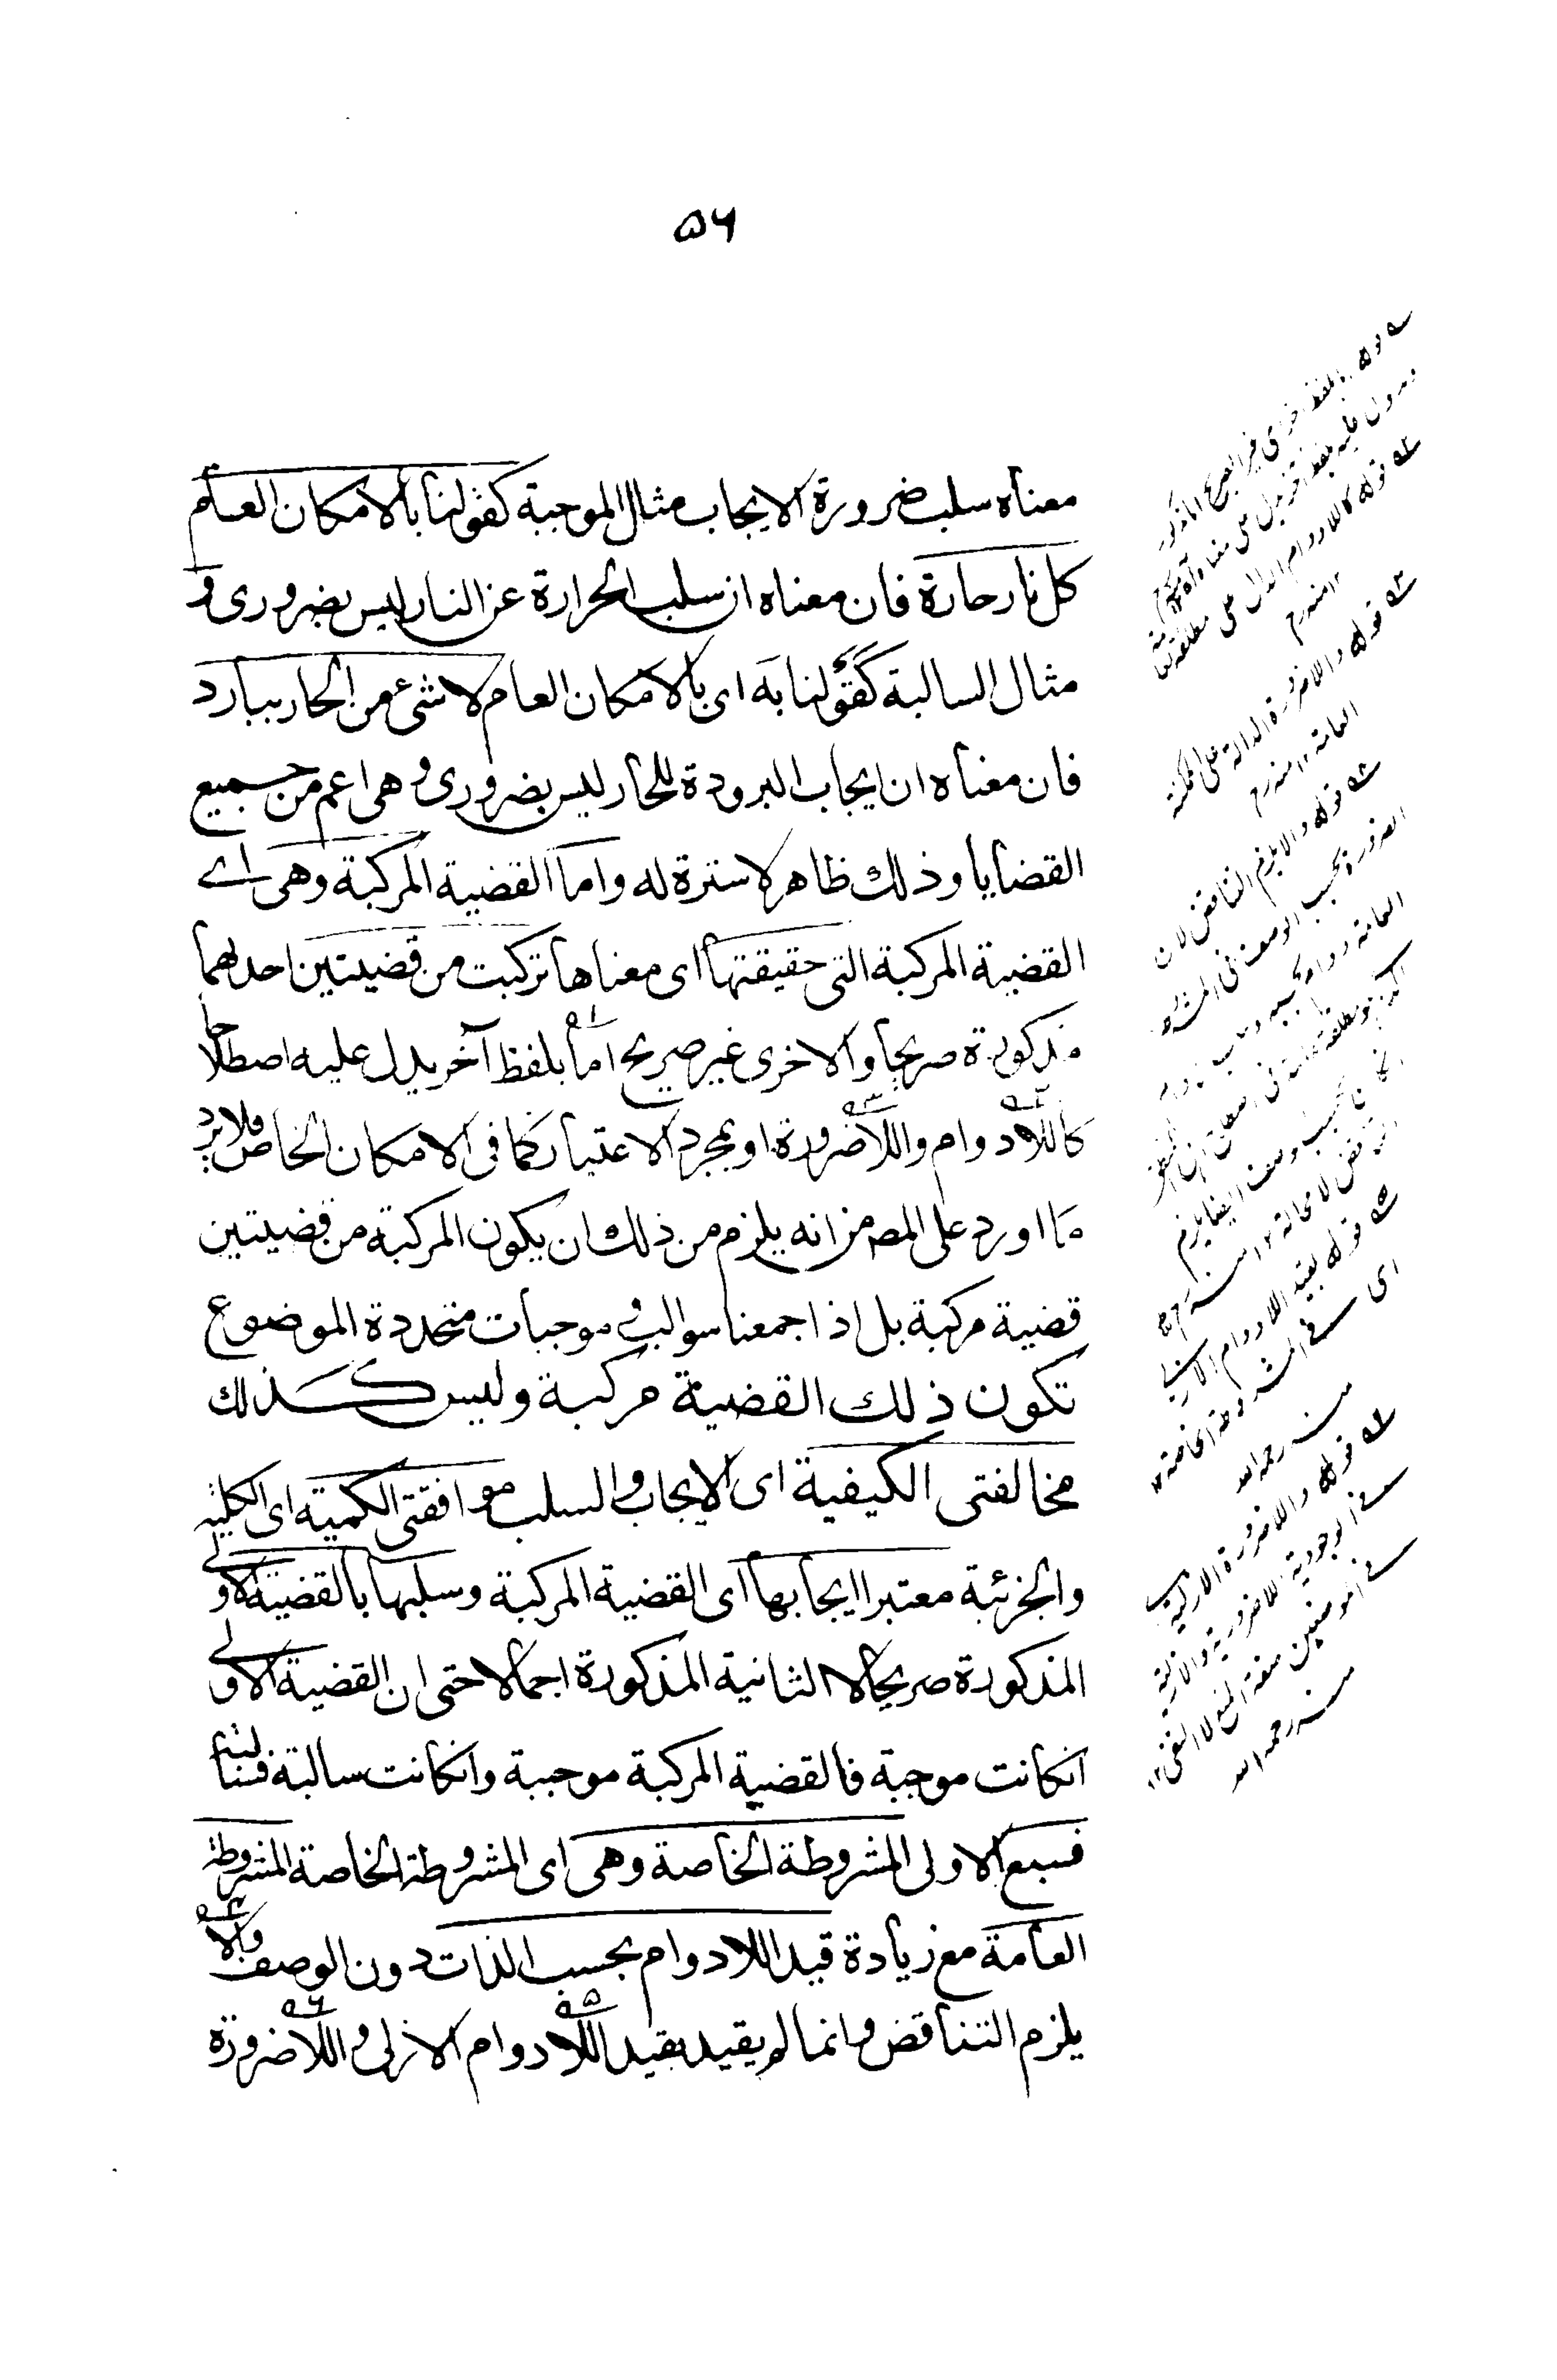 ۵۶
معناه سلب ضرورة الايجاب مثال الموجبة كقولنا بالامكان العام
كل نار حارة فان معناه ان سلب الحرارة عن النار ليس بضروری و
مثال السالبة كقولنا به ای بالامكان العام لا شیء من الحار ببارد
فان معناه ان ايجاب البرودة للحار ليس بضروری وهی اعم من جميع
القضايا وذلك ظاهر لا سترة له واما القضية المركبة وهی ای
القضية المركبة التی حقيقتها ای معناها تركبت من قضيتين احدٰهما
مذكورة صريحا والاخری غير صريح اما بلفظ آخر يدل عليه اصطلاحا
كاللادوام واللاضرورة او بمجرد الاعتبار كما فی الامكان الخاص فلا يرد
ما اورد علی المصـ من انه يلزم من ذلك ان يكون المركبة من قضيتين
قضية مركبة بل اذا جمعنا سوالب و موجبات متحددة الموضوع
تكون ذلك القضية مركبة وليس كذلك
مخالفتی الكيفية ای الايجاب والسلب موافقتی الكمية ای الكلية
والجزئية معتبرا ايجابها ای القضية المركبة وسلبها بالقضية الاولی
المذكورة صريحا لا الثانية المذكورة اجمالا حتی ان القضية الاولی
انكانت موجبة فالقضية المركبة موجبة وانكانت سالبة فسالبة
فسبع الاولی المشروطة الخاصة وهی ای المشروطة الخاصة المشروطة
العامة مع زيادة قيد اللادوام بحسب الذات دون الوصف والا
يلزم التناقض وانما لم يقيد بقيد اللادوام الازلی واللاضرورة
قوله كاللادوام الدال علی مطلقة
قوله واللاضرورة الدالة علی الممكنة
العامة ١٢ منه رح
قوله والا يلزم التناقض لان
الضرورة بحسب الوصف فی المشروطة
قوله بقيد اللادوام الازلی
ای فی المشروطة الخاصة ١٢
منه رحمه الله
قوله واللاضرورة الازلية
منه رحمه الله